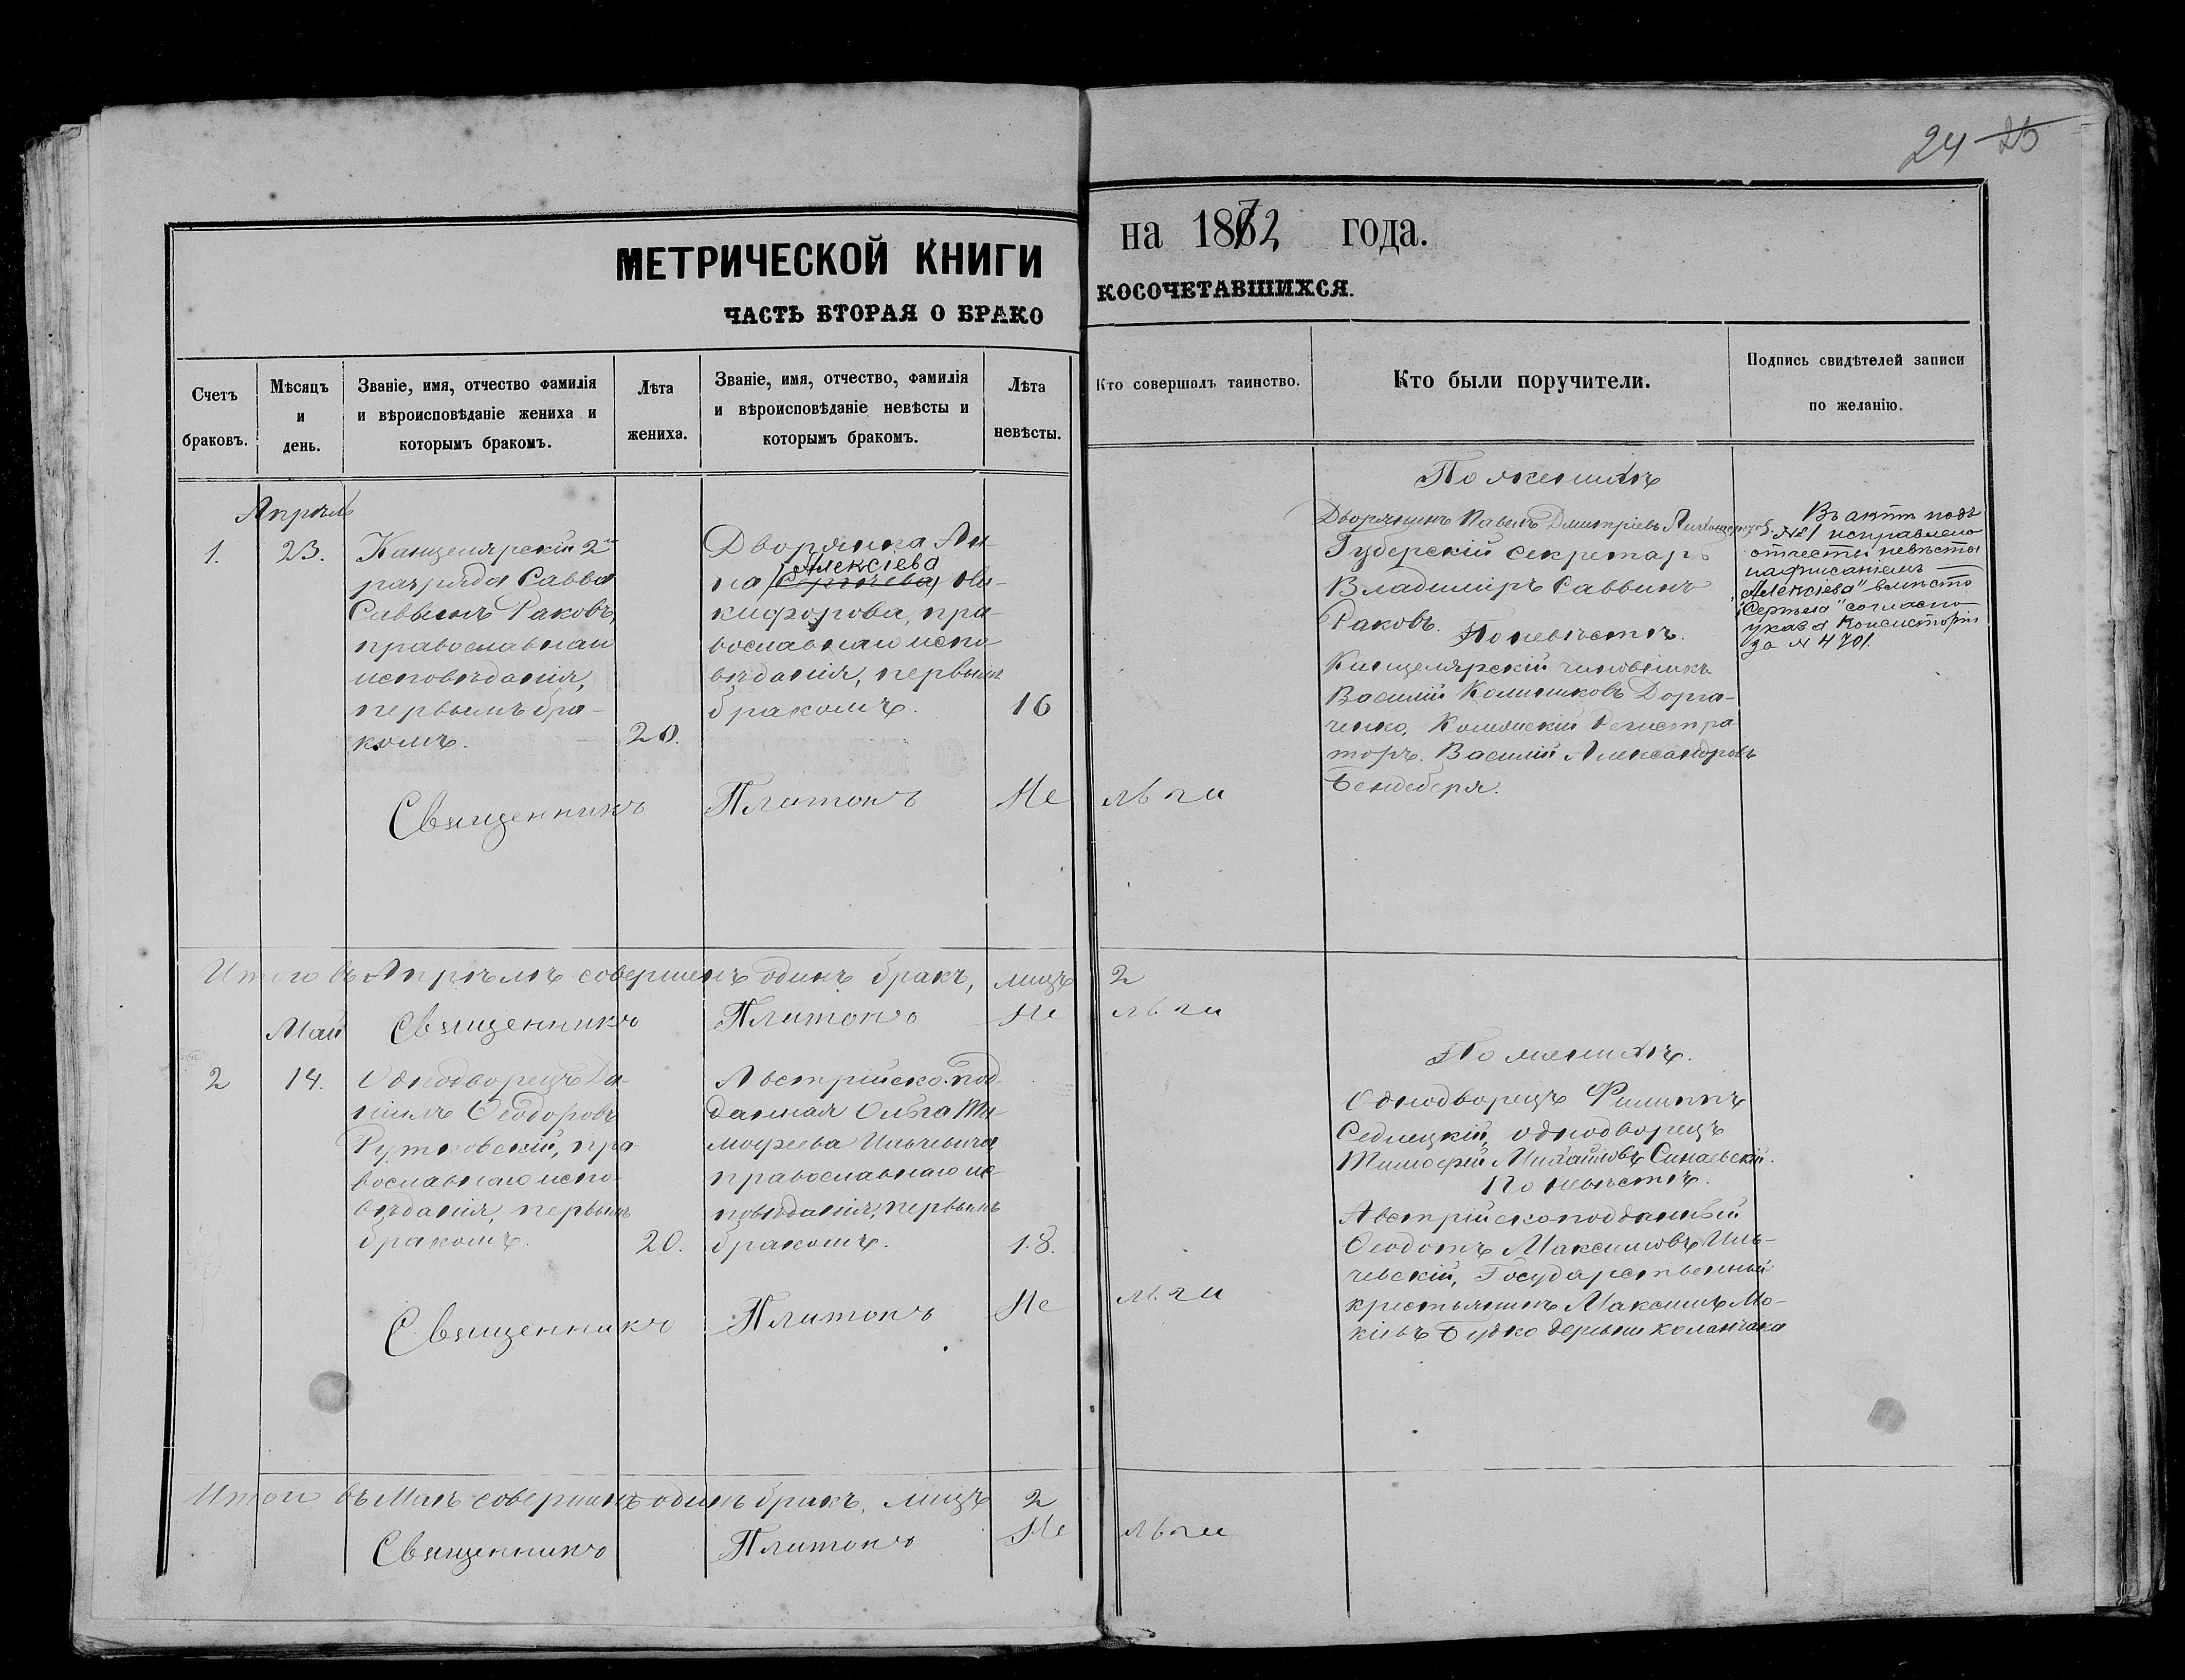 24 25
МЕТРИЧЕСКОЙ КНИГИ
на 1872 года.
ЧАСТЬ ВТОРАЯ О БРАКО
КОСОЧЕТАВШИХСЯ.
Счетъ браковъ.
Мѣсяцъ и день.
Званіе, имя, отчество фамилія
и вѣроисповѣданіе жениха и
которымъ бракомъ.
Лѣта жениха.
Званіе, имя, отчество, фамилія
и вѣроисповѣданіе невѣсты и
которымъ бракомъ.
Лѣта невѣсты.
Кто совершалъ таинство.
Кто были поручители.
Подпись свидѣтелей записи
по желанію.
Апрѣль
1.
23.
Канцелярскій 2
разряда Савва
Саввинъ Раковъ,
православнаго
исповѣданія,
первымъ бра-
комъ.
20.
Дворянка Ан-
Алексіева
на (Сергѣева) Ни-
кифорова, пра-
вославнаго испо-
вѣданія, первымъ
бракомъ.
16
По женихѣ
Дворянинъ Павелъ Дмитріевъ
Губерскій секретарь
Владиміръ Саввинъ
Раковъ. По невѣстѣ.
Канцелярскій чиновникъ
Василій
Регистра-
торъ. Василій Александровъ
Бендеберя.
Въ актѣ подъ
№ 1 исправлено
отчество невѣсты
написаніемъ
„Алексіева" вмѣсто
„Сергѣева" согласно
указа Консисторіи
за № 4701.
Священникъ Платонъ Не льги
Итого въ Апрѣлѣ совершенъ одинъ бракъ, лицъ 2
Священникъ Платонъ Не льги
Май
2
14.
Однодворецъ Да-
ніилъ Ѳеодоровъ
Рутковскій, пра-
вославнаго испо-
вѣданія, первымъ
бракомъ.
20.
Австрійско-под-
данная Ольга Ти-
мофеева Ильчевича,
православнаго ис-
повѣданія, первымъ
бракомъ.
18.
По женихѣ.
Однодворецъ Филиппъ
Седлецкій, однодворецъ
Тимофей Михайловъ
По невѣстѣ.
Австрійскоподданный
Ѳеодотъ Максимовъ Иль-
чевскій, Государственный
крестьянинъ Максимъ Мо-
кіевъ Будко деревни Каланчака
Священникъ Платонъ Не льги
Итого въ Маѣ совершенъ одинъ бракъ, лицъ 2
Священникъ Платонъ Не льги